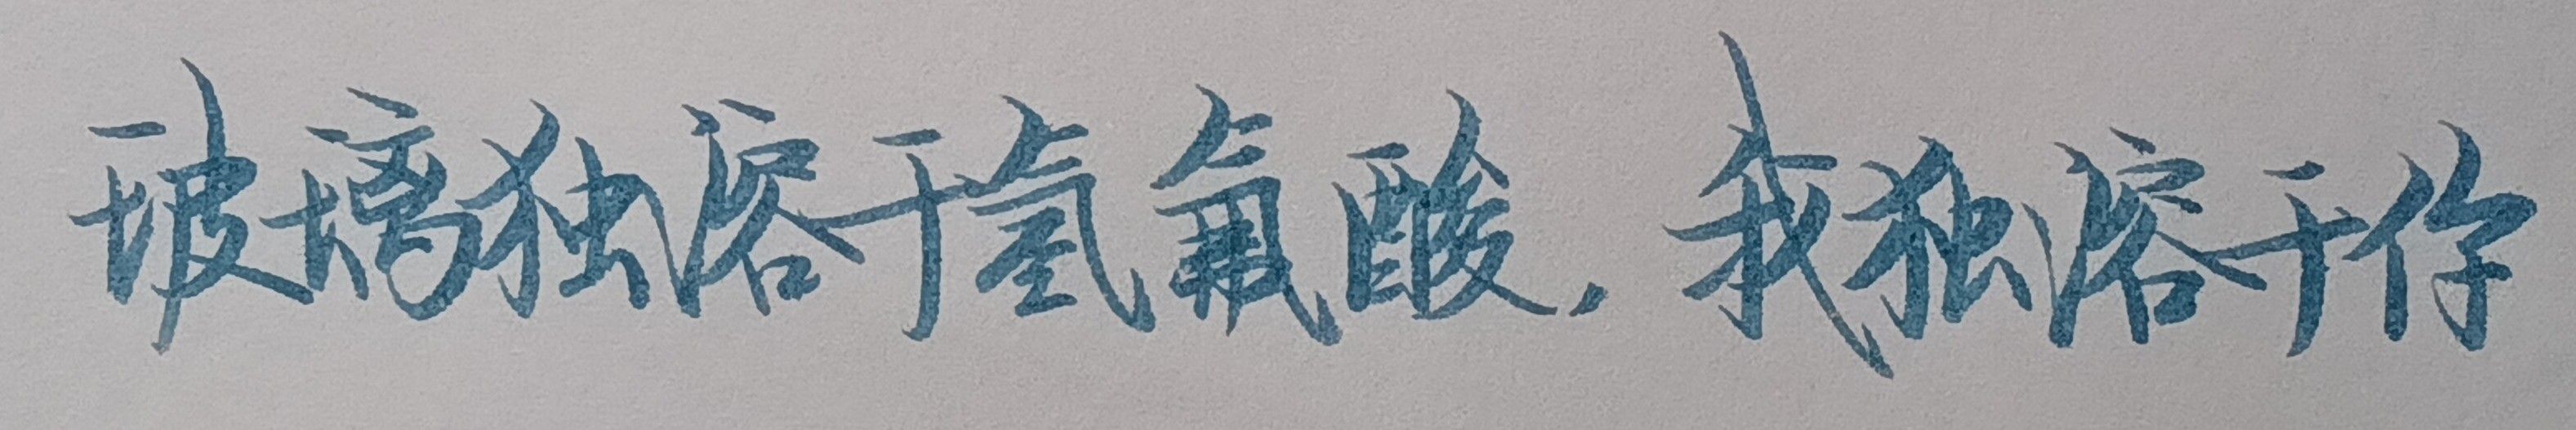 玻璃独溶于氢氟酸，我独溶于你